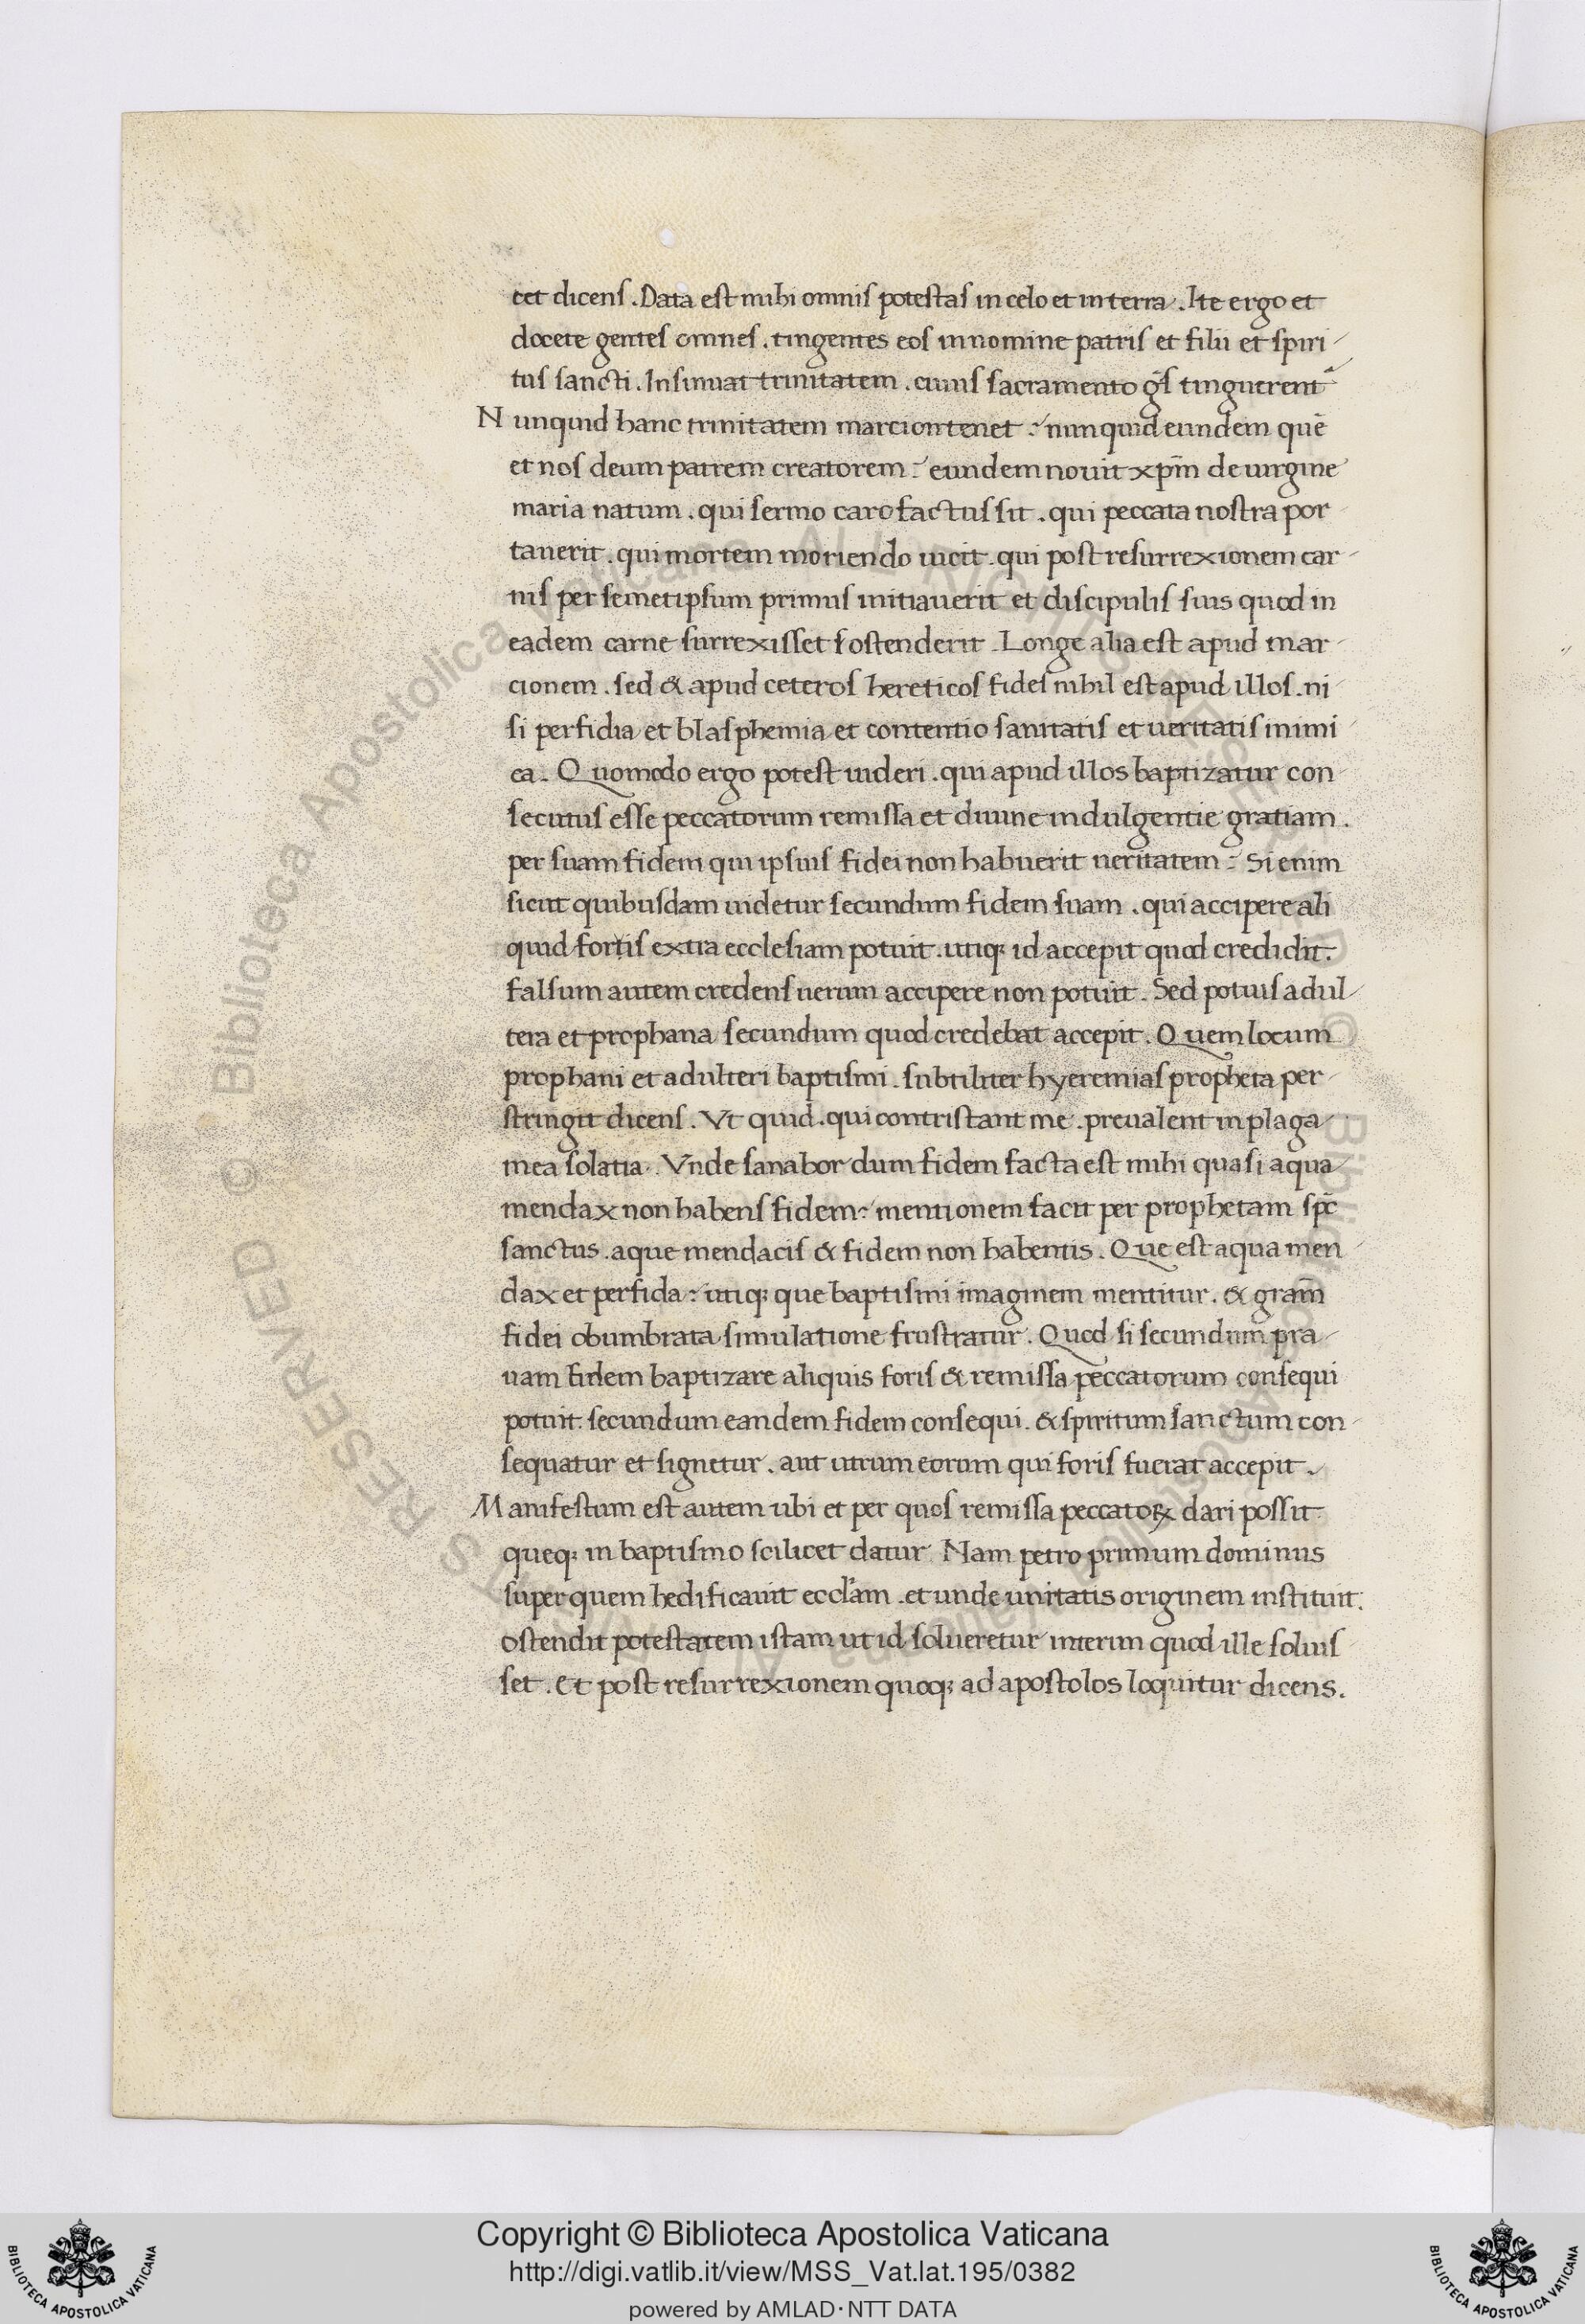 cet dicens . Data est mihi omnis potestas in celo et in terra . Ite ergo et
docete gentes omnes . tingentes eos in nomine patris et filii et spiri
tus sancti . Insinuat trinitatem . cuius sacramento gēs tinguerent
Nunquid hanc trinitatem marcion tenet : nunquid eundem quē
et nos deum patrem creatorem : eundem nouit xp̄m de uirgine
maria natum . qui sermo caro factus sit . qui peccata nostra por
tauerit . qui mortem moriendo uicit . qui post resurrexionem car
nis per semetipsum primus initiauerit et discipulis suis quod in
eadem carne surrexisset ostenderit . Longe alia est apud mar
cionem . sed & apud ceteros hereticos fides nihil est apud illos . ni
si perfidia et blasphemia et contentio sanitatis et ueritatis inimi
ca . Quomodo ergo potest uideri . qui apud illos baptizatur con
secutus esse peccatorum remissa et diuine indulgentie gratiam .
per suam fidem qui ipsius fidei non habuerit ueritatem : Si enim
sicut quibusdam uidetur secundum fidem suam . qui accipere ali
quid fortis extra ecclesiam potuit . utiq; id accepit quod credidit .
falsum autem credens uerum accipere non potuit . Sed potius adul
tera et prophana secundum quod credebat accepit . Quem locum
prophani et adulteri baptismi . subtiliter hyeremias propheta per
stringit dicens . Vt quid . qui contristant me . preualent in plaga
mea solatia . Vnde sanabor dum fidem facta est mihi quasi aqua
mendax non habens fidem : mentionem facit per prophetam sp̄c
sanctus . aque mendacis & fidem non habentis . Que est aqua men
dax et perfida : utiq; que baptismi imaginem mentitur . & gram̄
fidei obumbrata simulatione frustratur . Quod si secundum pra
uam fidem baptizare aliquis foris & remissa peccatorum consequi
potuit secundum eandem fidem consequi . & spiritum sanctum con
sequatur et signetur . aut utrum eorum qui foris fuerat accepit .
Manifestum est autem ubi et per quos remissa peccatoꝝ dari possit
queq; in baptismo scilicet datur Nam petro primum dominus
super quem hedificauit eccl̄am . et unde unitatis originem instituit .
ostendit potestatem istam ut id solueretur interim quod ille soluis
set . Et post resurrexionem quoq; ad apostolos loquitur dicens .
© Biblioteca Apostolica Vaticana ALL RIGHTS RESERVED
Copyright © Biblioteca Apostolica Vaticana
http://digi.vatlib.it/view/MSS_Vat.lat.195/0382
powered by AMLAD·NTT DATA
BIBLIOTECA APOSTOLICA VATICANA
BIBLIOTECA APOSTOLICA VATICANA